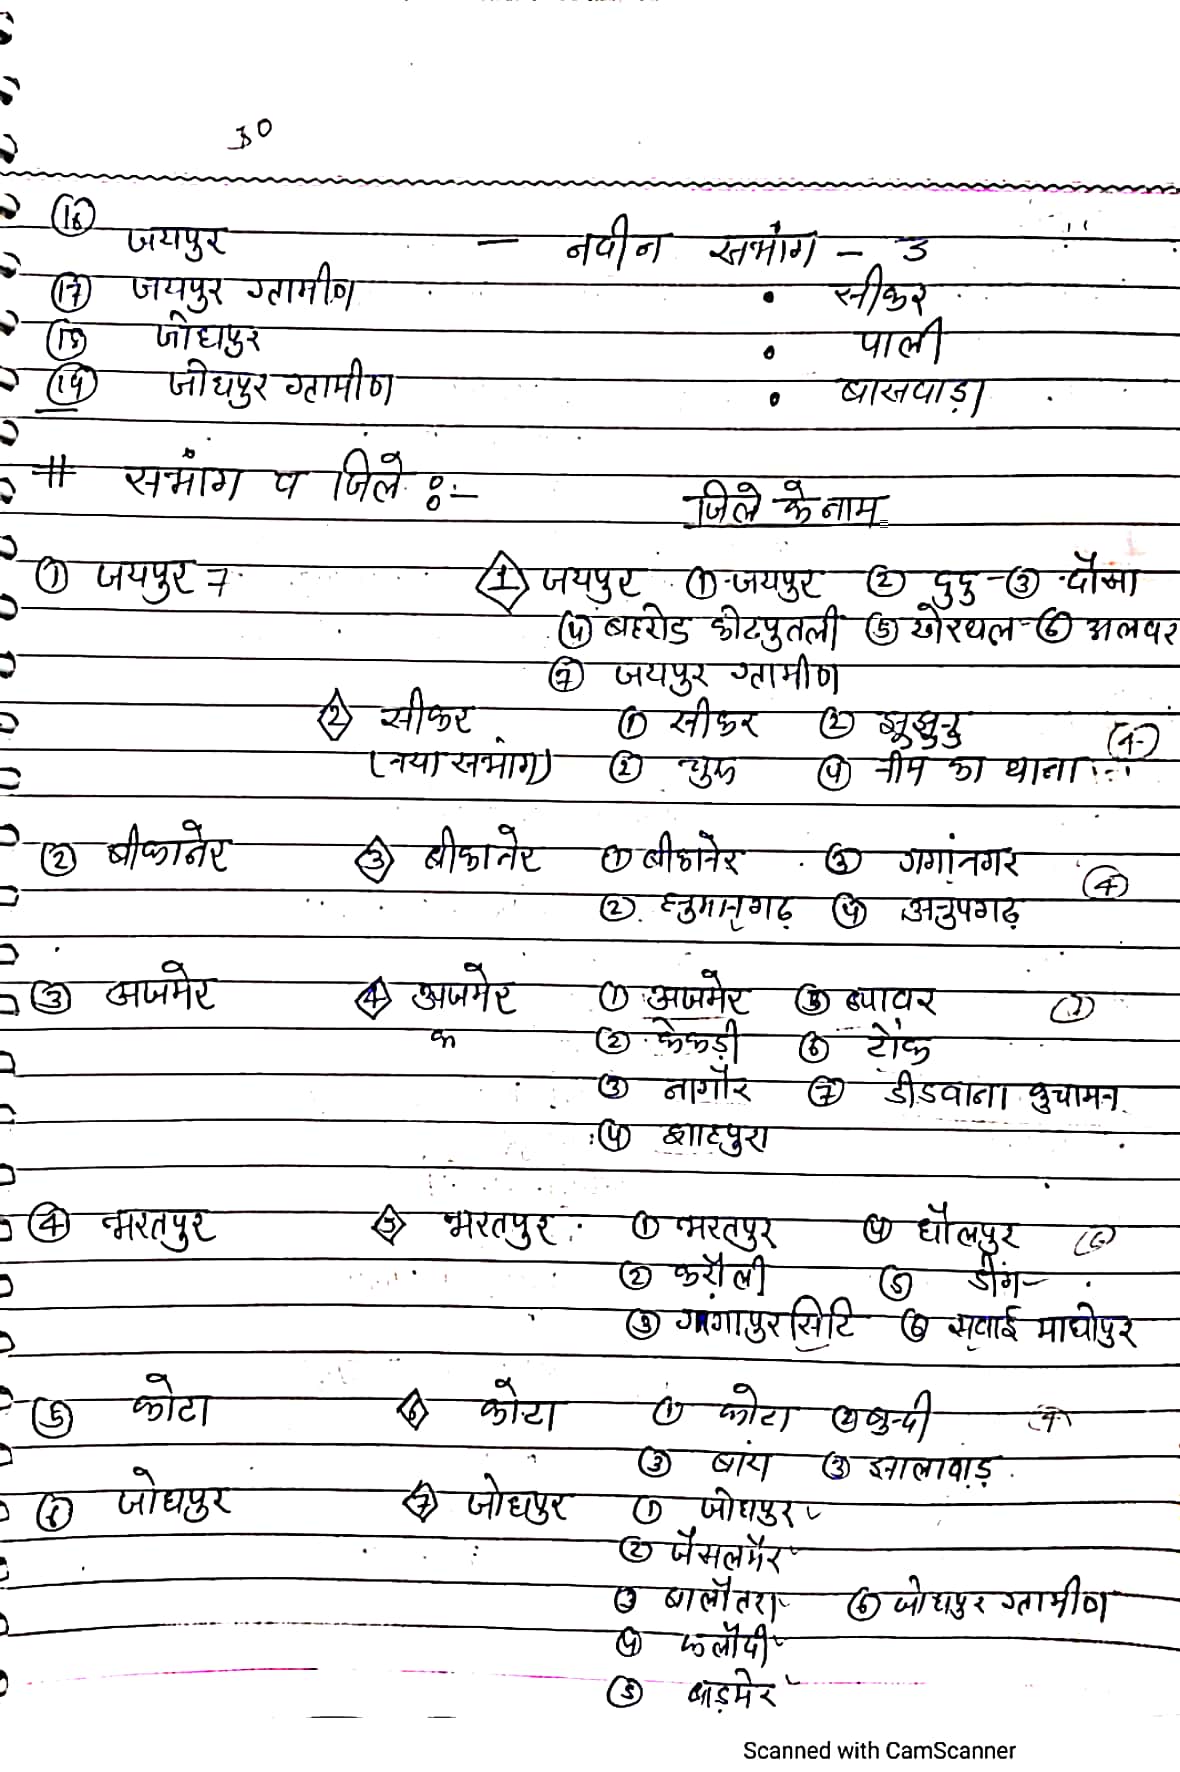 30
(16) जयपुर - नवीन सभांग - 3
(17) जयपुर ग्रामीण • सीकर
(18) जोधपुर • पाली
(19) जोधपुर ग्रामीण • बासवाड़ा
# सभांग व जिले :-
जिले के नाम
① जयपुर 7 1 जयपुर ① जयपुर ② दुदु ③ दौसा
④ बहरोड कोटपुतली ⑤ खेरथल ⑥ अलवर
⑦ जयपुर ग्रामीण
2 सीकर ① सीकर ② झुझुनु (4)
(नया सभांग) ② चुरू ④ नीम का थाना
② बीकानेर 3 बीकानेर ① बीकानेर ③ गगांनगर (4)
② हनुमानगढ़ ④ अनुपगढ़
③ अजमेर 4 अजमेर ① अजमेर ⑤ ब्यावर (7)
क ② केकड़ी ⑥ टोंक
③ नागौर ⑦ डीडवाना कुचामन
④ शाहपुरा
④ भरतपुर 5 भरतपुर ① भरतपुर ④ धौलपुर (6)
② करौली ⑤ डीग
③ गंगापुर सिटि ⑥ सवाई माधोपुर
⑤ कोटा 6 कोटा ① कोटा ② बुन्दी (4)
③ बांरा ③ झालावाड़
⑥ जोधपुर 7 जोधपुर ① जोधपुर
② जैसलमैर
③ बालौतरा ⑥ जोधपुर ग्रामीण
④ फलौदी
⑤ बाड़मेर
Scanned with CamScanner